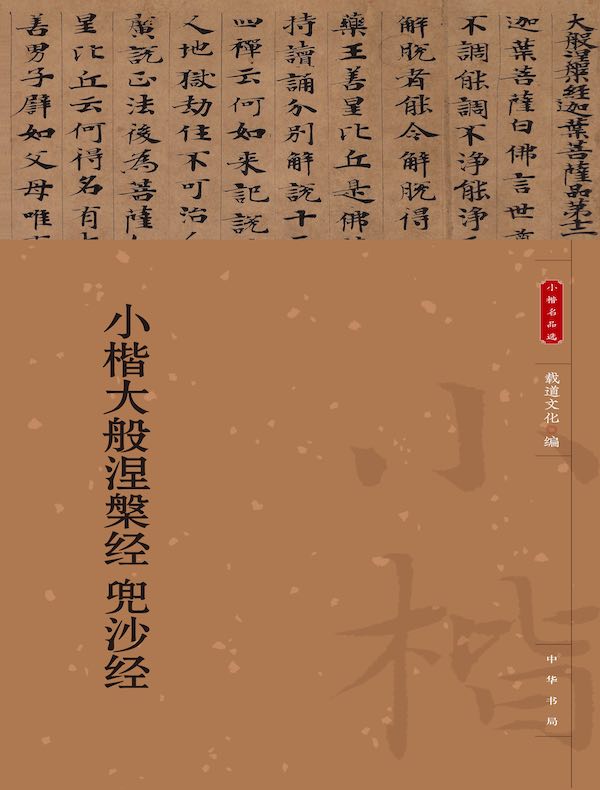 大般涅槃経迦葉菩薩品第十二
迦葉菩薩白佛言世尊
不調能調不淨能淨
解脱者能令解脱得
藥王善星比丘是佛
持讀誦分別解說十二
四禪云何如来記說
地獄劫住不可治人
廣說正法後為菩薩
星比丘云何得名有
善男子譬如父母唯
小楷名品选
载道文化 编
小楷
小楷大般涅槃经 兜沙经
中华书局